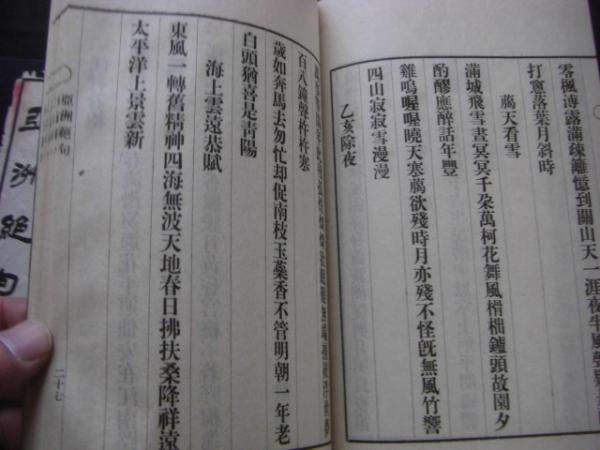 零楓溥露滿疎離憶到關山天一涯夜半風
打窻落葉月斜時
薦天看雪
滿城飛雪晝冥冥千朶萬柯花舞風榾柮鑪頭故園夕
酌醪應醉話年豐
雞鳴喔喔曉天塞薦欲殘時月亦殘不怪旣無風竹響
四山寂寂雪漫漫
乙亥除夜
百八鐘聲杵杵寒
歲如奔馬去匆忙却促南枝玉蘂香不管明朝一年老
白頭猶喜是靑陽
海上雲遠恭賦
東風一轉舊精神四海無波天地春日拂扶桑降祥遠
太平洋上景雲新
亞洲絕句
二十七
亞洲絕句